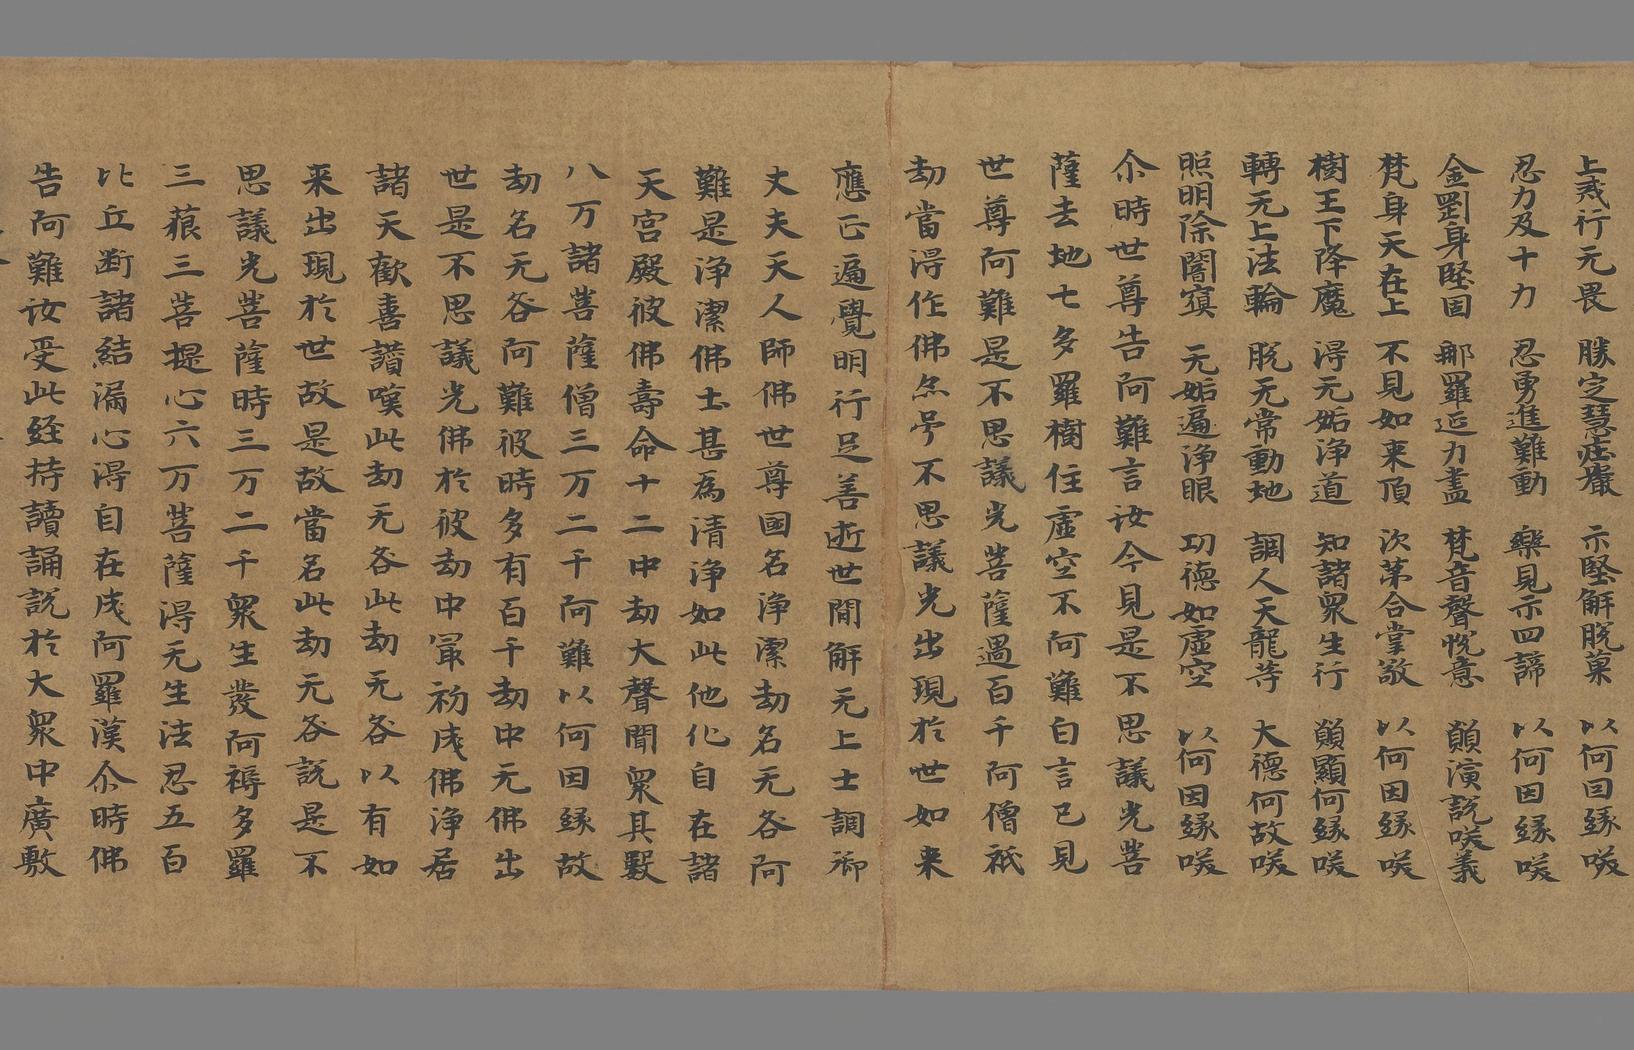 上戒行无畏　勝定慧莊嚴　示堅解脫菓　以何因緣𠯗
忍力及十力　忍勇進難動　樂見示四諦　以何因緣𠯗
金剛身堅固　那羅延力盡　梵音聲悅意　願演說𠯗義
梵身天在上　不見如来頂　次苐合掌敬　以何因緣𠯗
樹王下降魔　淂无姤淨道　知諸衆生行　願顯何緣𠯗
轉无上法輪　脫无常動地　調人天龍等　大德何故𠯗
照明除闇㝠　无姤遍淨眼　功德如虛空　以何因緣𠯗
尒時世尊告阿難言汝今見是不思議光菩
薩去地七多羅樹住虛空不阿難白言已見
世尊阿難是不思議光菩薩過百千阿僧祇
劫當淂作佛𤇆号不思議光出現於世如来
應正遍覺明行足善逝世間解无上士調御
丈夫天人師佛世尊國名淨潔劫名无咎阿
難是淨潔佛土甚為清淨如此他化自在諸
天宮殿彼佛壽命十二中劫大聲聞衆其數
八万諸菩薩僧三万二千阿難以何因緣故
劫名无咎阿難彼時多有百千劫中无佛出
世是不思議光佛於彼劫中㝡初成佛淨居
諸天歡喜讚嘆此劫无咎此劫无咎以有如
来出現於世故是故當名此劫无咎說是不
思議光菩薩時三万二千衆生發阿耨多羅
三藐三菩提心六万菩薩淂无生法忍五百
比丘断諸結漏心淂自在成阿羅漢尒時佛
告阿難汝受此經持讀誦說於大衆中廣敷